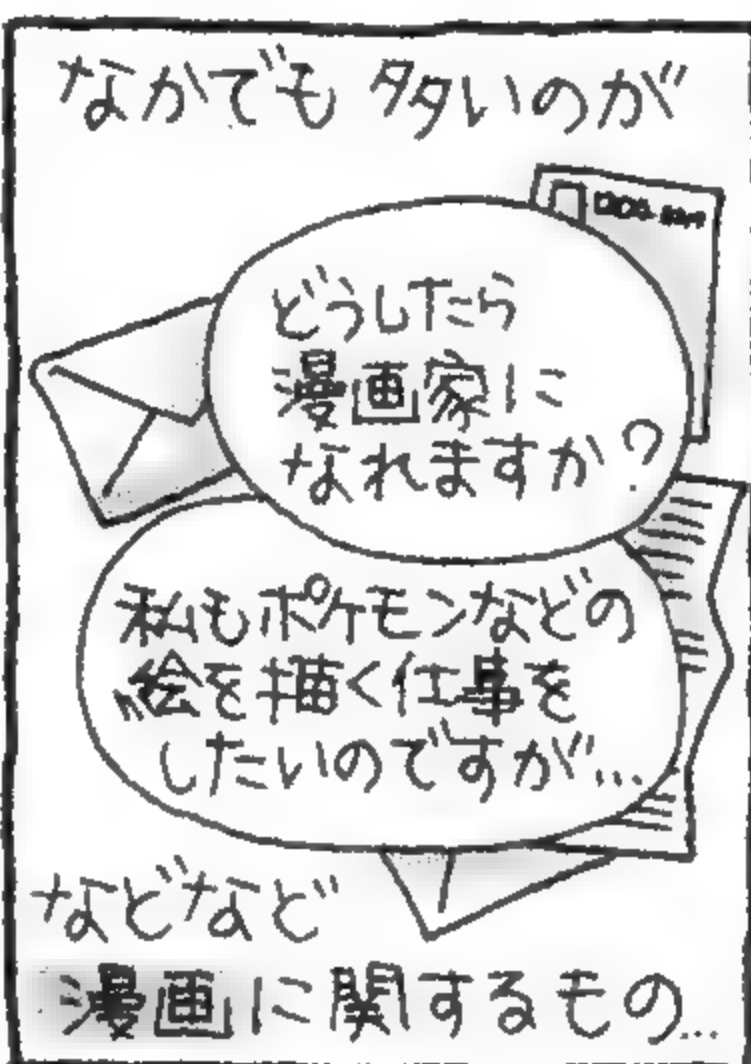 なかでも 多いのが
どうしたら
漫画家に
なれますか?
私もポケモンなどの
絵を描く仕事を
したいのですが…
などなど
漫画に関するもの…